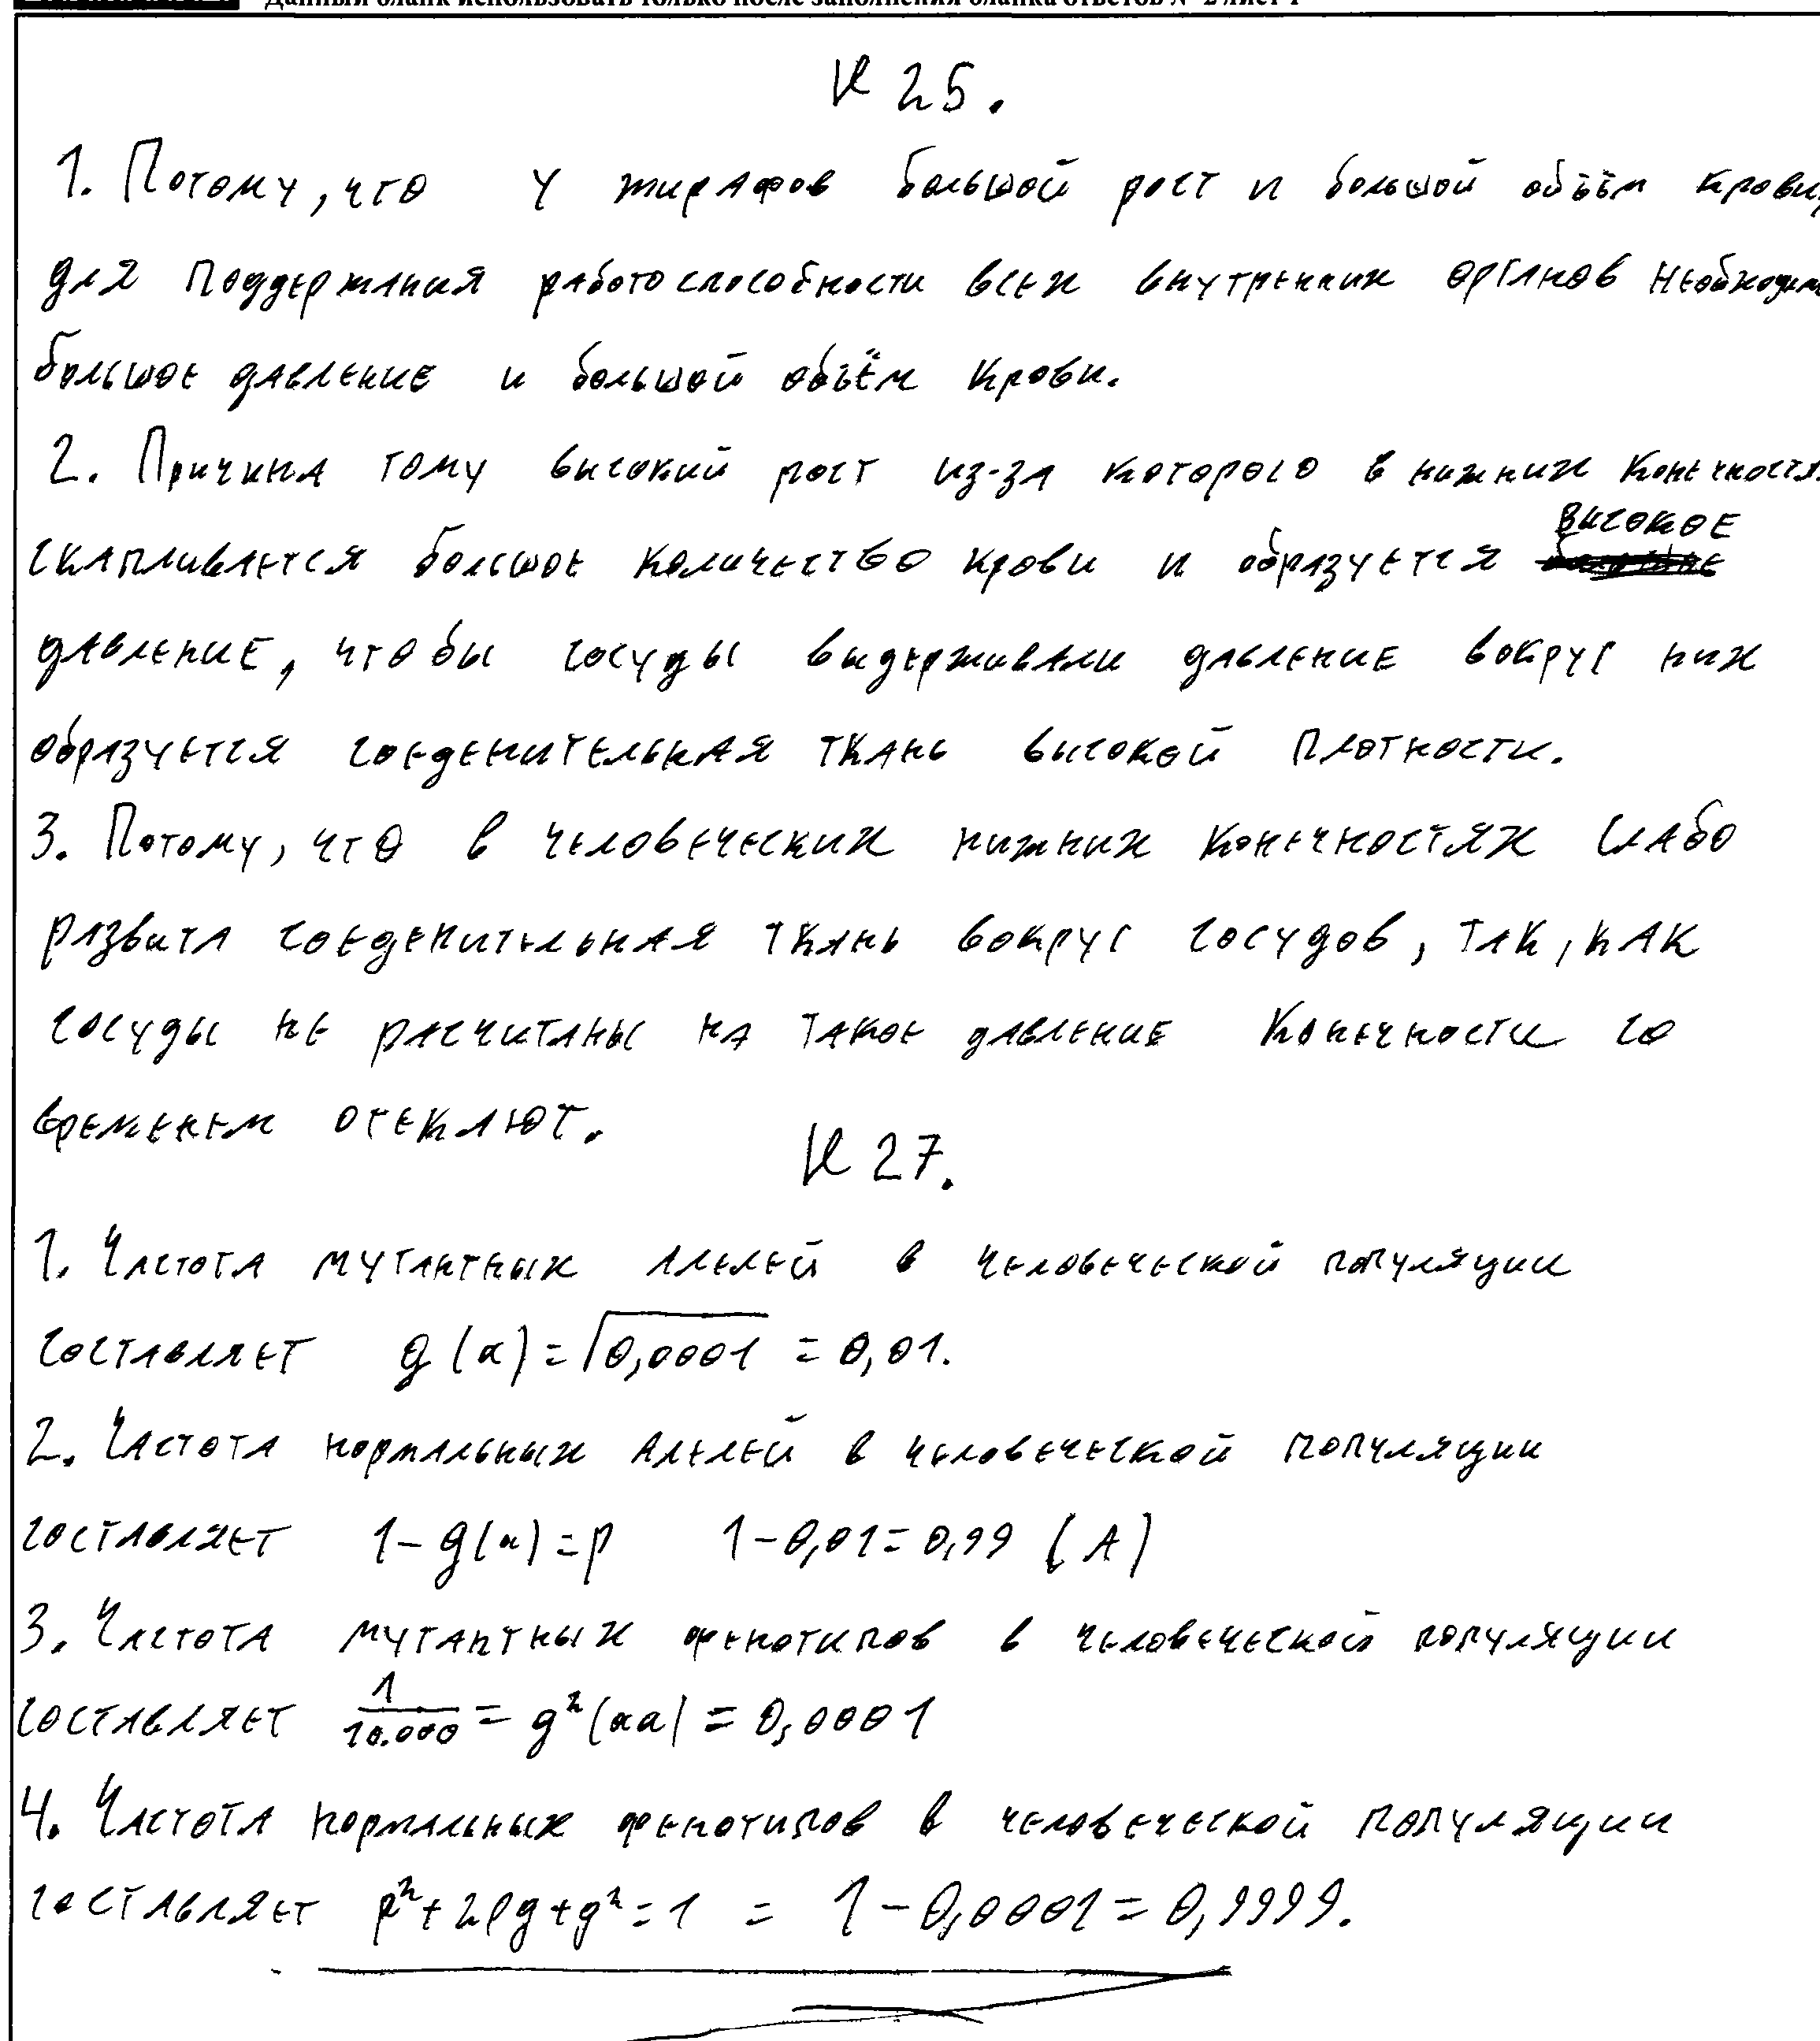 Данный бланк использовать только после заполнения бланка ответов № 2 лист 1
N 25.
1. Потому, что у жирафов большой рост и большой объём крови,
для поддержания работоспособности всех внутренних органов необходимо
большое давление и большой объём крови.
2. Причина тому высокий рост из-за которого в нижних конечностях
скапливается большое количество крови и образуется высокое
давление, чтобы сосуды выдерживали давление вокруг них
образуется соеденительная ткань высокой плотности.
3. Потому, что в человеческих нижних конечностях слабо
развита соеденительная ткань вокруг сосудов, так, как
сосуды не расчитаны на такое давление конечности со
временем отекают.
N 27.
1. Частота мутантных алелей в человеческой популяции
составляет g (a) = √0,0001 = 0,01.
2. Частота нормальных алелей в человеческой популяции
составляет 1-g(a)=p 1-0,01=0,99 (A)
3. Частота мутантных фенотипов в человеческой популяции
составляет 1/10.000 = g²(aa) = 0,0001
4. Частота нормальных фенотипов в человеческой популяции
составляет p²+2pg+g²=1 = 1-0,0001=0,9999.